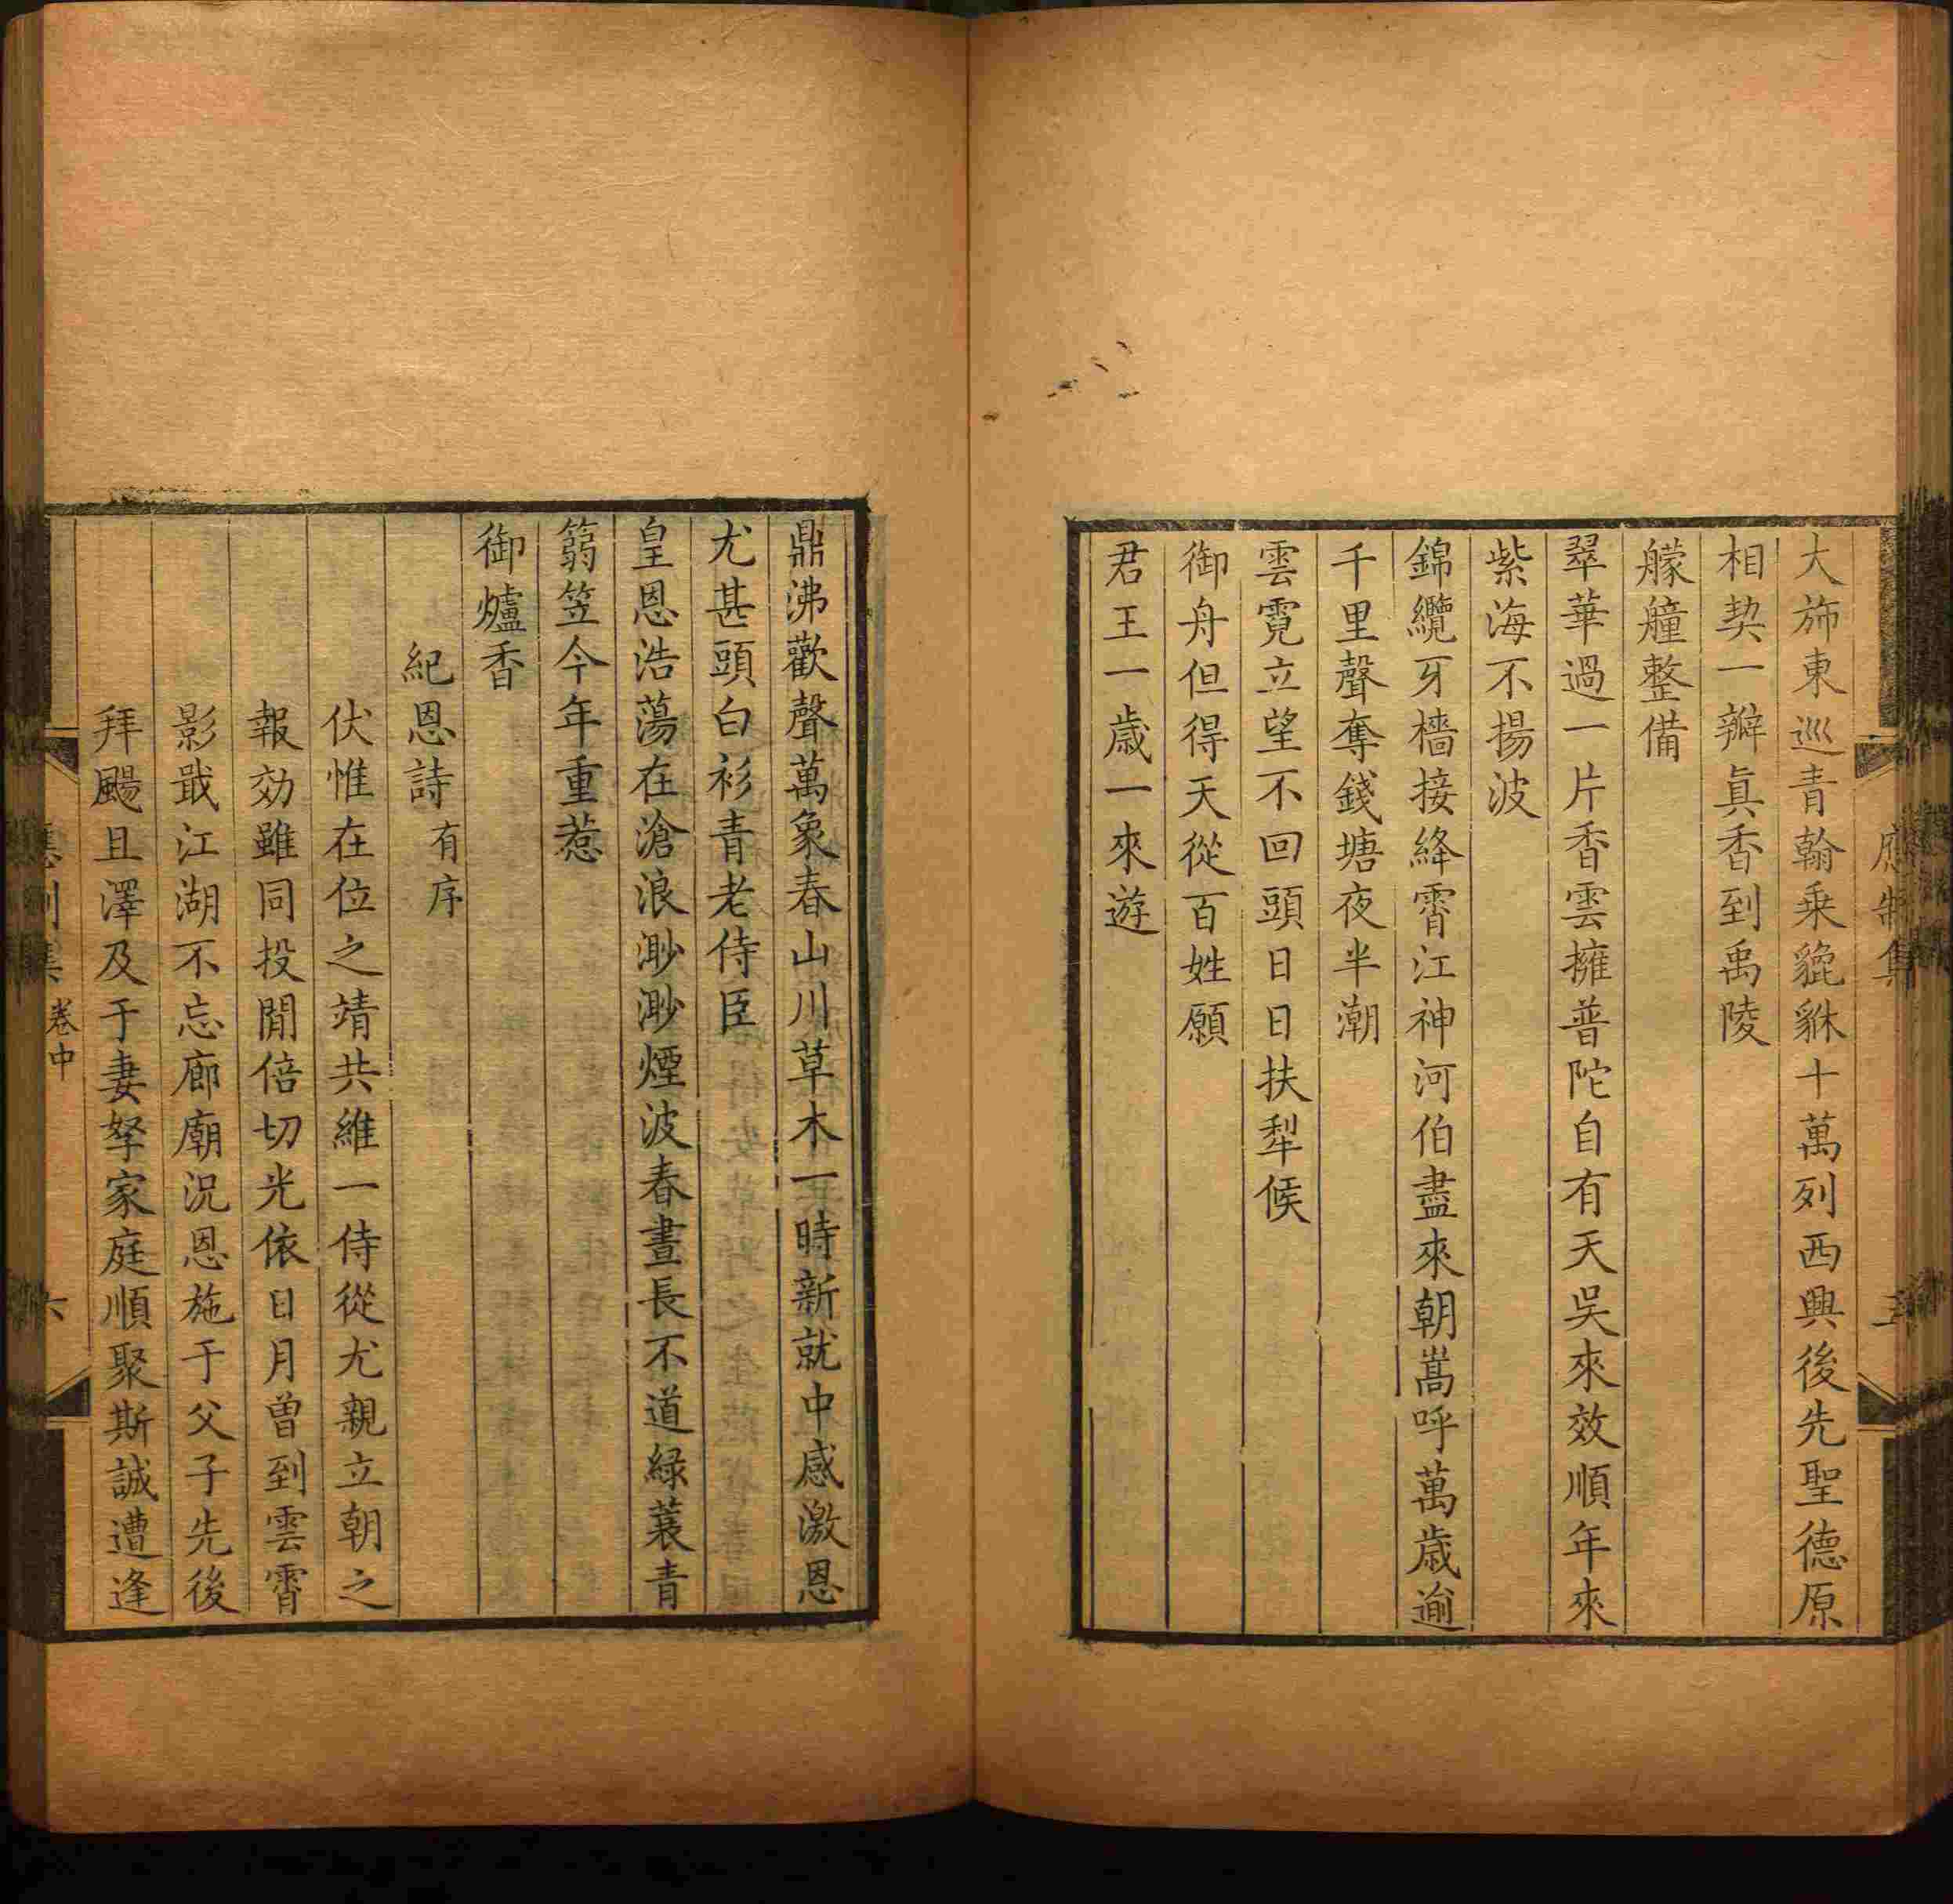 大斾東巡青翰乗貔貅十萬列西興後先聖德原
相契一瓣眞香到禹陵
艨艟整備
翠華過一片香雲擁普陀自有天吳來效順年來
紫海不揚波
錦纜牙檣接絳霄江神河伯盡來朝嵩呼萬歲逾
千里聲奪錢塘夜半潮
雲霓立望不回頭日日扶犁候
御舟但得天從百姓願
君王一歲一來遊
鼎沸歡聲萬象春山川草木一時新就中感激恩
尤甚頭白衫青老侍臣
皇恩浩蕩在滄浪渺渺煙波春晝長不道緑蓑青
篛笠今年重惹
御爐香
紀恩詩有序
伏惟在位之靖共維一侍從尤親立朝之
報効雖同投閒倍切光依日月曾到雲霄
影戢江湖不忘廊廟況恩施于父子先後
拜颺且澤及于妻孥家庭順聚斯誠遭逢
卷中
六